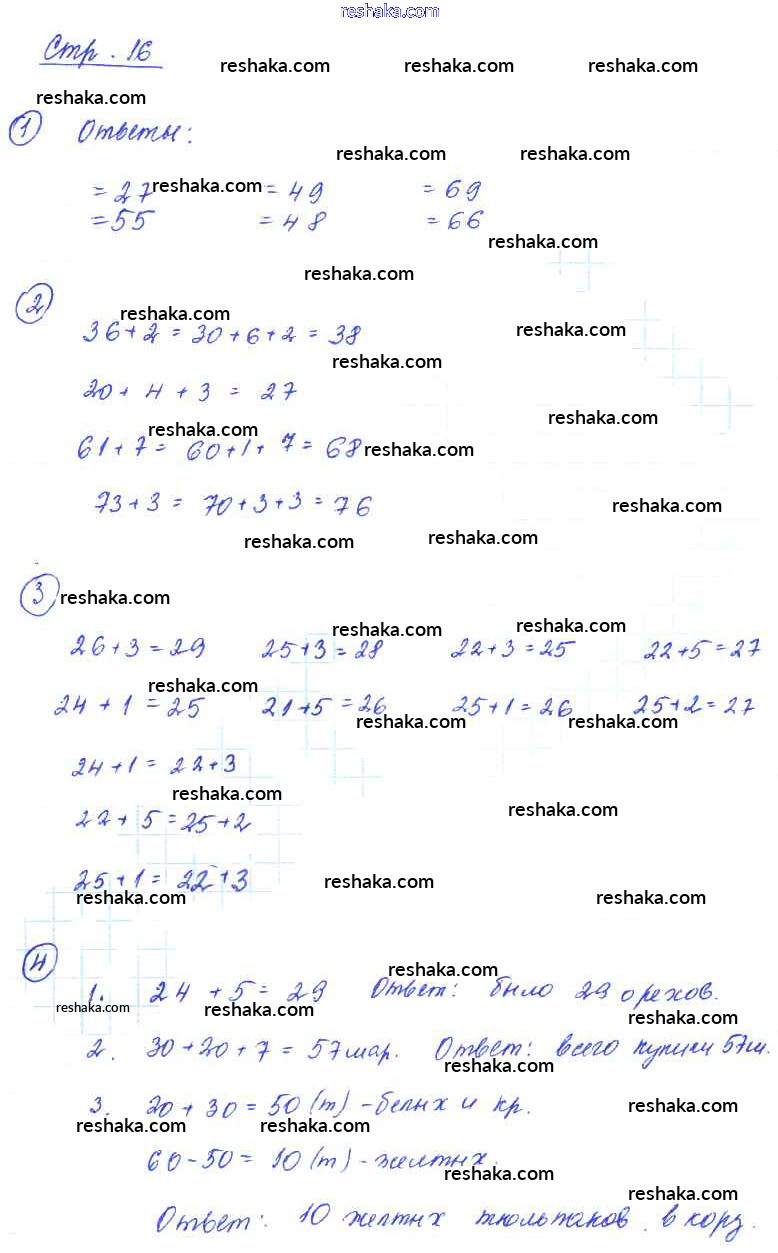 reshaka.com
Стр. 16
reshaka.com reshaka.com reshaka.com
reshaka.com
1 Ответы:
reshaka.com reshaka.com
= 27 reshaka.com = 49 = 69
= 55 = 48 = 66
reshaka.com
reshaka.com
2
reshaka.com reshaka.com
36 + 2 = 30 + 6 + 2 = 38
reshaka.com
20 + 4 + 3 = 27
reshaka.com
reshaka.com
61 + 7 = 60 + 1 + 7 = 68 reshaka.com
73 + 3 = 70 + 3 + 3 = 76 reshaka.com
reshaka.com reshaka.com
3 reshaka.com
reshaka.com reshaka.com
26 + 3 = 29 25 + 3 = 28 22 + 3 = 25 22 + 5 = 27
reshaka.com
24 + 1 = 25 21 + 5 = 26 25 + 1 = 26 25 + 2 = 27
reshaka.com reshaka.com
24 + 1 = 22 + 3
reshaka.com
reshaka.com
22 + 5 = 25 + 2
25 + 1 = 22 + 3 reshaka.com
reshaka.com reshaka.com
4
reshaka.com
1. 24 + 5 = 29 Ответ: было 29 орехов.
reshaka.com reshaka.com reshaka.com
2. 30 + 20 + 7 = 57 мар. Ответ: всего купили 57 м.
reshaka.com
3. 20 + 30 = 50 (т) - белых и кр. reshaka.com
reshaka.com reshaka.com
60 - 50 = 10 (т) - желтых.
reshaka.com
reshaka.com
Ответ: 10 желтых тюльпанов в корз.